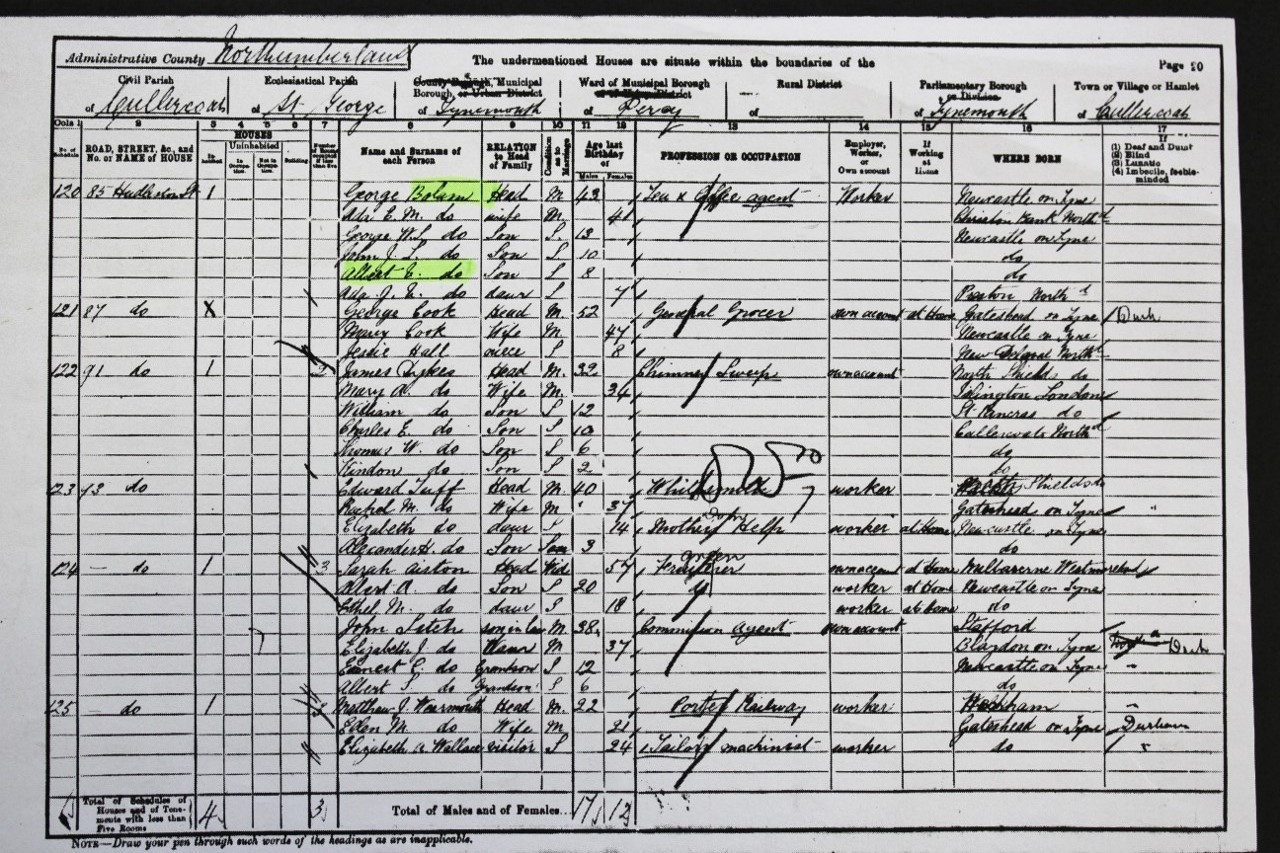 Administrative County Northumberland
The undermentioned Houses are situate within the boundaries of the
Page 20
Civil Parish of Cullercoats
Ecclesiastical Parish of St. George
County Borough, Municipal Borough, or Urban District of Tynemouth
Ward of Municipal Borough or of Urban District of Percy
Rural District of
Parliamentary Borough or Division of Tynemouth
Town or Village or Hamlet of Cullercoats
Cols 1 2 3 4 5 6 7 8 9 10 11 12 13 14 15 16 17
No. of Schedule
ROAD, STREET, &c., and No. or NAME of HOUSE
HOUSES
Inhabited
Uninhabited
In Occupation.
Not in Occupation.
Building
Name and Surname of each Person
RELATION to Head of Family
Condition as to Marriage
Age last Birthday of
Males Females
PROFESSION OR OCCUPATION
Employer, Worker, or Own account
If Working at Home
WHERE BORN
If
(1) Deaf and Dumb
(2) Blind
(3) Lunatic
(4) Imbecile, feeble-minded
120 85 Hudleston St 1 George Bolam Head M 43 Tea & Coffee agent Worker Newcastle on Tyne
Ada E. M. do wife M. 41 Christon Bank North d
George W. S. do Son S. 13 Newcastle on Tyne
John J. S. do Son S. 10 do
Albert E. do Son S 8 do
Ada J. E. do daur S 7 Preston North d
121 87 do X George Cook Head M. 52 General Grocer own account at Home Gateshead on Tyne Durh
Mary Cook Wife M. 47 Newcastle on Tyne
Jessie Hall niece S 8 New North d
122 91 do 1 3 James Dykes Head M. 32 Chimney Sweep own account North Shields do
Mary A. do Wife M. 34 Islington London
William do Son S 12 St Pancras do
Charles E. do Son S 10 Cullercoats North d
Thomas W. do Son S 6 do
do Son S 2 do
123 93 do Edward Tuff Head M 40 Whitesmith worker Shields do
Rachel M. do Wife M 37 Gateshead on Tyne "
Elizabeth do daur S 14 Mothers Help worker at Home Newcastle on Tyne
Alexander H. do Son 3 do
124 — do 1 3 Sarah Head Wid 57 Fruiterer own account at Home Westmoreland
Albert A. do Son S 20 worker at Home Newcastle on Tyne
Ethel M. do daur S 18 worker at home do
John son in law M. 38 Commission agent own account Stafford
Elizabeth J. do Daur M 37 Blaydon on Tyne Durh
Earnest C. do Grandson S 12 Newcastle on Tyne "
Albert S. do Grandson S 6 do
125 — do 1 3 Matthew J. Wearmouth Head M. 22 Porter Railway worker "
Eden M. do Wife M 21 Gateshead on Tyne Durham
Elizabeth A Wallace visitor S 24 Tailors machinist worker do "
Total of Schedules of Houses and of Tenements with less than Five Rooms
4
3
Total of Males and of Females...
17 12
NOTE—Draw your pen through such words of the headings as are inapplicable.